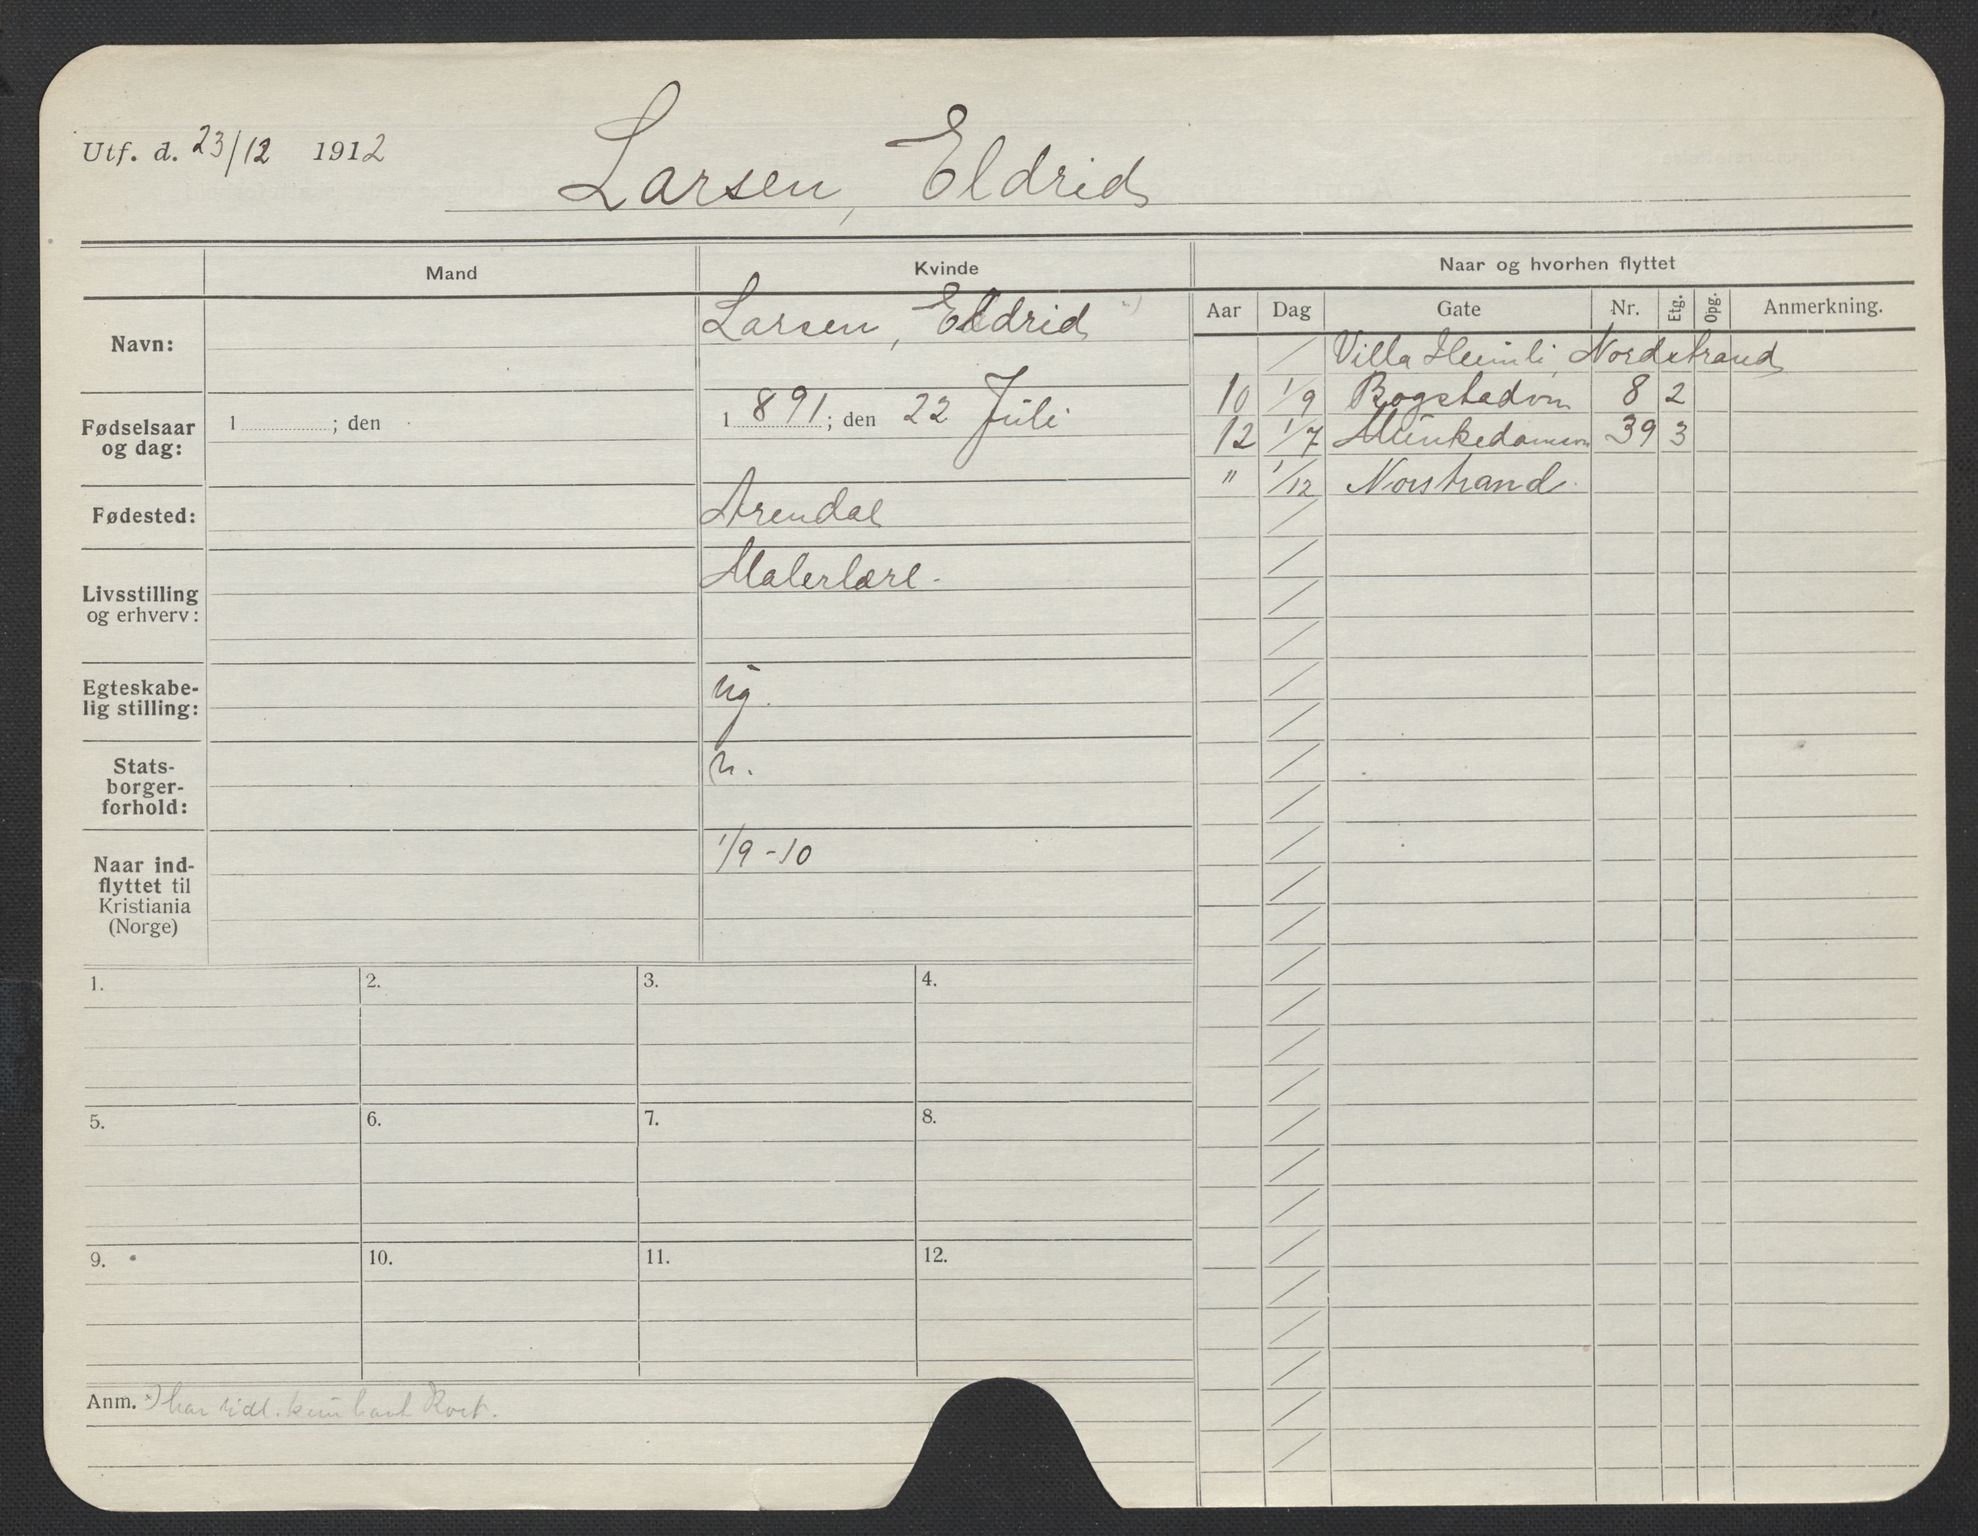 Utf. d. 23/12 1912
Larsen, Eldrid
Mand
Kvinde
Naar og hvorhen flyttet
Aar Dag Gate Nr. Etg. Opg. Anmerkning.
Navn:
Larsen, Eldrid
Fødselsaar og dag:
1 ; den
1891; den 22 Juli
Fødested:
Arendal
Livsstilling og erhverv:
Malerlære.
Egteskabe-
lig stilling:
ug.
Stats-
borger-
forhold:
n.
Naar ind-
flyttet til
Kristiania
(Norge)
1/9-10
/ Villa Heimli, Nordstrand
10 1/9 Bogstadvn 8 2
12 1/7 Munkedamsvn 39 3
" 1/12 Norstrand
1.
2.
3.
4.
5.
6.
7.
8.
9.
10.
11.
12.
Anm. x) har tidl. kun havt Kort.